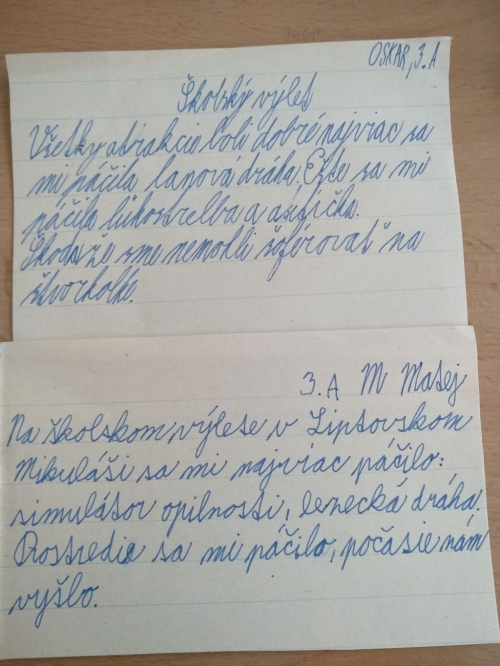 OSKAR, 3. A
Školský výlet
Všetky atrakcie boli dobré najviac sa
mi páčila lanová dráha. Ešte sa mi
páčila lukostrelba a autíčka.
Škoda že sme nemohli šoférovať na
štvorkolke.
3. A M Matej
Na školskom výlete v Liptovskom
Mikuláši sa mi najviac páčilo:
simulátor opilnosti, lezecká dráha.
Prostredie sa mi páčilo, počasie nám
vyšlo.